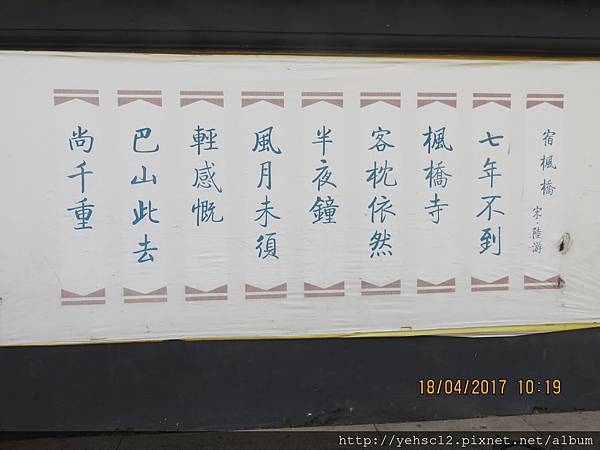 宿楓橋
宋·陸游
七年不到
楓橋寺
客枕依然
半夜鐘
風月未須
輕感慨
巴山此去
尚千重
18/04/2017 10:19
http://yehsc12.pixnet.net/album